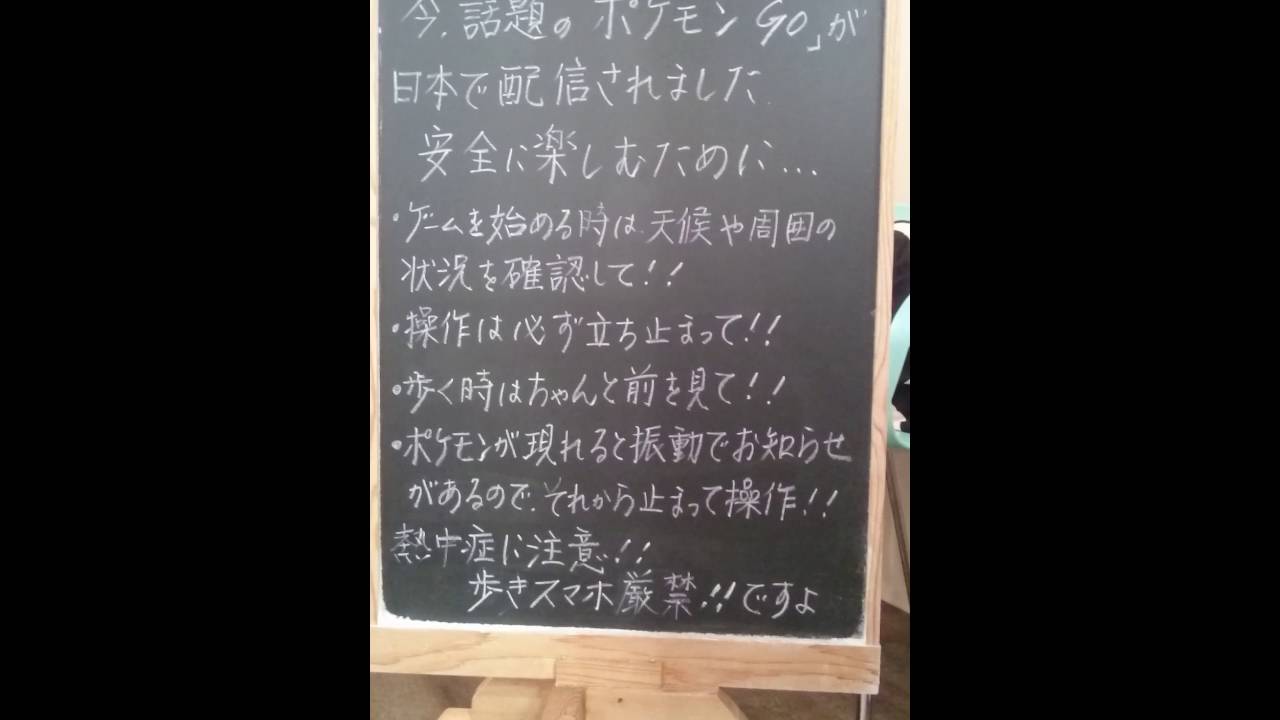 今、話題の ポケモンGO」が
日本で配信されました
安全に楽しむために...
・ゲームを始める時は、天候や周囲の
状況を確認して!!
・操作は必ず立ち止まって!!
・歩く時はちゃんと前を見て!!
・ポケモンが現れると振動でお知らせ
があるので、それから止まって操作!!
熱中症に注意!!
歩きスマホ厳禁!!ですよ